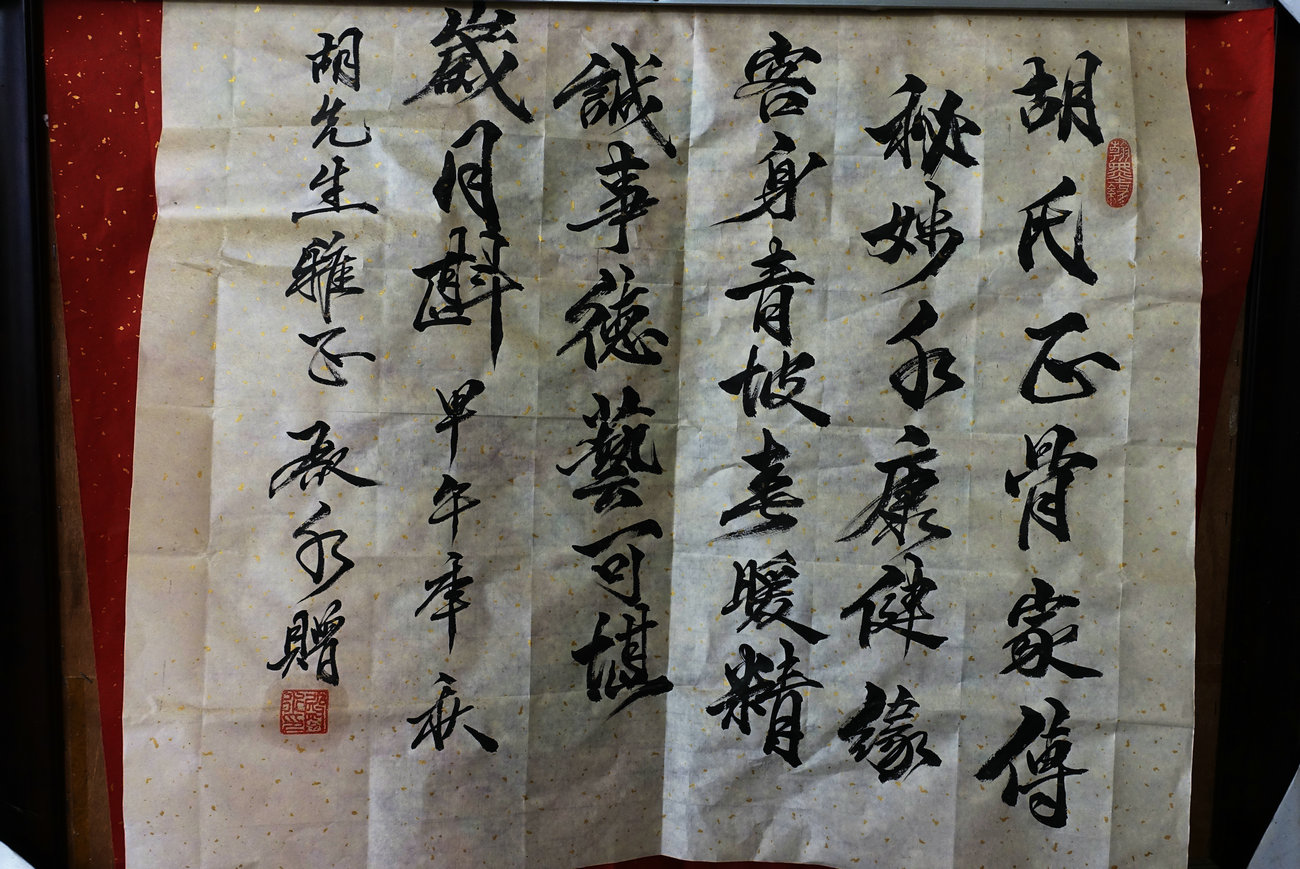 胡氏正骨家傳
秘妙永康健緣
客身青坡春暖精
誠事德藝可堪
歲月斟 甲午年秋
胡先生雅正 永贈